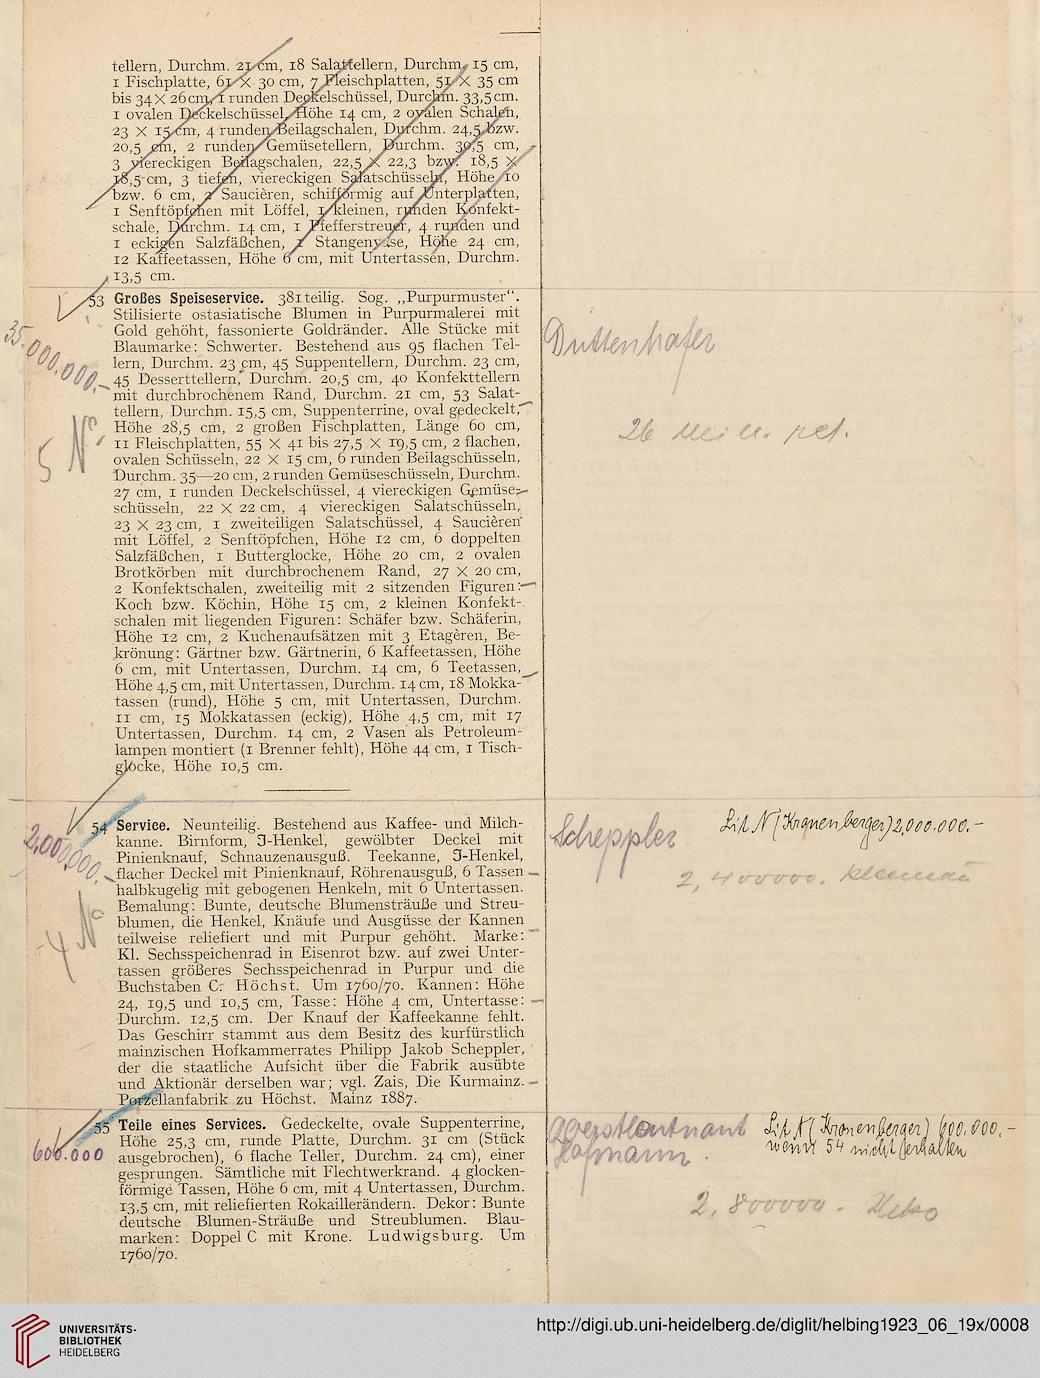 tellern, Durchm. 21 cm, 18 Salattellern, Durchm. 15 cm,
1 Fischplatte, 61 × 30 cm, 7 Fleischplatten, 51 × 35 cm
bis 34 × 26 cm, 1 runden Deckelschüssel, Durchm. 33,5 cm.
1 ovalen Deckelschüssel, Höhe 14 cm, 2 ovalen Schalen,
23 × 15 cm, 4 runden Beilagschalen, Durchm. 24,5 bzw.
20,5 cm, 2 runden Gemüsetellern, Durchm. 30,5 cm,
3 viereckigen Beilagschalen, 22,5 × 22,3 bzw. 18,5 ×
18,5 cm, 3 tiefen, viereckigen Salatschüsseln, Höhe 10
bzw. 6 cm, 2 Saucièren, schifförmig auf Unterplatten,
1 Senftöpfchen mit Löffel, 1 kleinen, runden Konfekt-
schale, Durchm. 14 cm, 1 Pfefferstreuer, 4 runden und
1 eckigen Salzfäßchen, 1 Stangenvase, Höhe 24 cm,
12 Kaffeetassen, Höhe 6 cm, mit Untertassen, Durchm.
13,5 cm.
53 Großes Speiseservice. 381teilig. Sog. „Purpurmuster“.
Stilisierte ostasiatische Blumen in Purpurmalerei mit
Gold gehöht, fassonierte Goldränder. Alle Stücke mit
Blaumarke: Schwerter. Bestehend aus 95 flachen Tel-
lern, Durchm. 23 cm, 45 Suppentellern, Durchm. 23 cm,
45 Desserttellern, Durchm. 20,5 cm, 40 Konfekttellern
mit durchbrochenem Rand, Durchm. 21 cm, 53 Salat-
tellern, Durchm. 15,5 cm, Suppenterrine, oval gedeckelt,
Höhe 28,5 cm, 2 großen Fischplatten, Länge 60 cm,
11 Fleischplatten, 55 × 41 bis 27,5 × 19,5 cm, 2 flachen,
ovalen Schüsseln, 22 × 15 cm, 6 runden Beilagschüsseln,
Durchm. 35—20 cm, 2 runden Gemüseschüsseln, Durchm.
27 cm, 1 runden Deckelschüssel, 4 viereckigen Gemüse-
schüsseln, 22 × 22 cm, 4 viereckigen Salatschüsseln,
23 × 23 cm, 1 zweiteiligen Salatschüssel, 4 Saucièren
mit Löffel, 2 Senftöpfchen, Höhe 12 cm, 6 doppelten
Salzfäßchen, 1 Butterglocke, Höhe 20 cm, 2 ovalen
Brotkörben mit durchbrochenem Rand, 27 × 20 cm,
2 Konfektschalen, zweiteilig mit 2 sitzenden Figuren:
Koch bzw. Köchin, Höhe 15 cm, 2 kleinen Konfekt-
schalen mit liegenden Figuren: Schäfer bzw. Schäferin,
Höhe 12 cm, 2 Kuchenaufsätzen mit 3 Etagèren, Be-
krönung: Gärtner bzw. Gärtnerin, 6 Kaffeetassen, Höhe
6 cm, mit Untertassen, Durchm. 14 cm, 6 Teetassen,
Höhe 4,5 cm, mit Untertassen, Durchm. 14 cm, 18 Mokka-
tassen (rund), Höhe 5 cm, mit Untertassen, Durchm.
11 cm, 15 Mokkatassen (eckig), Höhe 4,5 cm, mit 17
Untertassen, Durchm. 14 cm, 2 Vasen als Petroleum-
lampen montiert (1 Brenner fehlt), Höhe 44 cm, 1 Tisch-
glocke, Höhe 10,5 cm.
35.000.000.-
5 No
Duttenhofer
26
54 Service. Neunteilig. Bestehend aus Kaffee- und Milch-
kanne. Birnform, J-Henkel, gewölbter Deckel mit
Pinienknauf, Schnauzenausguß. Teekanne, J-Henkel,
flacher Deckel mit Pinienknauf, Röhrenausguß, 6 Tassen
halbkugelig mit gebogenen Henkeln, mit 6 Untertassen.
Bemalung: Bunte, deutsche Blumensträuße und Streu-
blumen, die Henkel, Knäufe und Ausgüsse der Kannen
teilweise reliefiert und mit Purpur gehöht. Marke:
Kl. Sechsspeichenrad in Eisenrot bzw. auf zwei Unter-
tassen größeres Sechsspeichenrad in Purpur und die
Buchstaben C. Höchst. Um 1760/70. Kannen: Höhe
24, 19,5 und 10,5 cm, Tasse: Höhe 4 cm, Untertasse:
Durchm. 12,5 cm. Der Knauf der Kaffeekanne fehlt.
Das Geschirr stammt aus dem Besitz des kurfürstlich
mainzischen Hofkammerrates Philipp Jakob Scheppler,
der die staatliche Aufsicht über die Fabrik ausübte
und Aktionär derselben war; vgl. Zais, Die Kurmainz.
Porzellanfabrik zu Höchst. Mainz 1887.
2,000,000.-
4 No
Scheppler
Lit N (Kronenberger) 2,000.000.-
2,400000.
55 Teile eines Services. Gedeckelte, ovale Suppenterrine,
Höhe 25,3 cm, runde Platte, Durchm. 31 cm (Stück
ausgebrochen), 6 flache Teller, Durchm. 24 cm), einer
gesprungen. Sämtliche mit Flechtwerkrand. 4 glocken-
förmige Tassen, Höhe 6 cm, mit 4 Untertassen, Durchm.
13,5 cm, mit reliefierten Rokaillerändern. Dekor: Bunte
deutsche Blumen-Sträuße und Streublumen. Blau-
marken: Doppel C mit Krone. Ludwigsburg. Um
1760/70.
600.000
Oberstleutnant
Hofmann.
Lit N (Kronenberger) 600.000.-
wenn 54 nicht erhalten
2,800000.
UNIVERSITÄTS-
BIBLIOTHEK
HEIDELBERG
http://digi.ub.uni-heidelberg.de/diglit/helbing1923_06_19x/0008